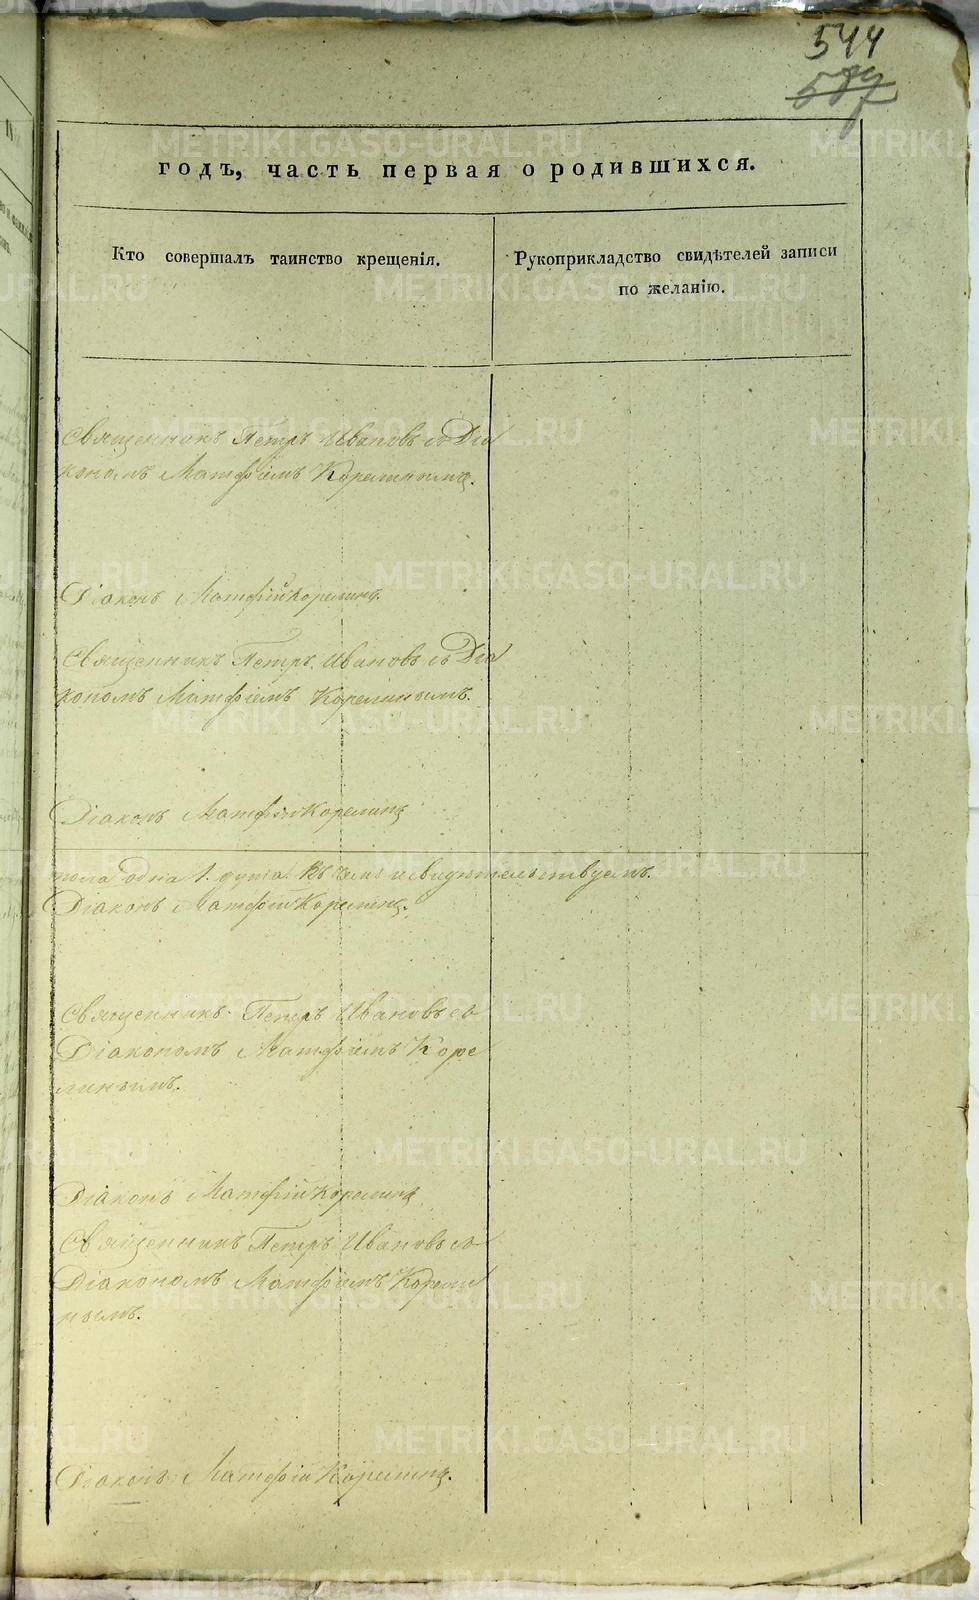 544
587
годъ, часть первая о родившихся.
Кто совершалъ таинство крещенія.
Рукоприкладство свидѣтелей записи
по желанію.
Священникъ Петръ Ивановъ со Діа
кономъ Матфіемъ Корелинымъ.
Діаконъ Матфій Корелинъ.
Священникъ Петръ Ивановъ со Діа
кономъ Матфіемъ Корелинымъ.
Діаконъ Матфій Корелинъ
пола одна 1. душа. Въ чемъ и свидѣтельствуемъ.
Діаконъ Матфій Корелинъ.
Священникъ Петръ Ивановъ со
Діакономъ Матфіемъ Коре
линымъ.
Діаконъ Матфій Корелинъ
Священникъ Петръ Ивановъ со
Діакономъ Матфіемъ Корели
нымъ.
Діаконъ Матфій Корелинъ.
METRIKI.GASO-URAL.RU